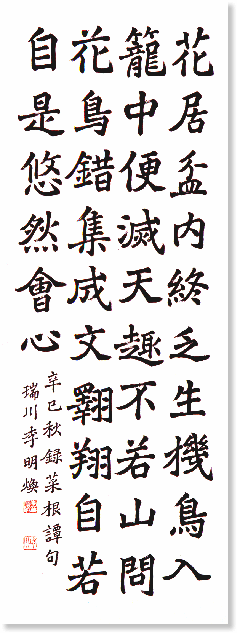 花居盆内終乏生機鳥入
籠中便滅天趣不若山問
花鳥錯集成文翱翔自若
自是悠然會心
辛巳秋録菜根譚句
瑞川李明煥